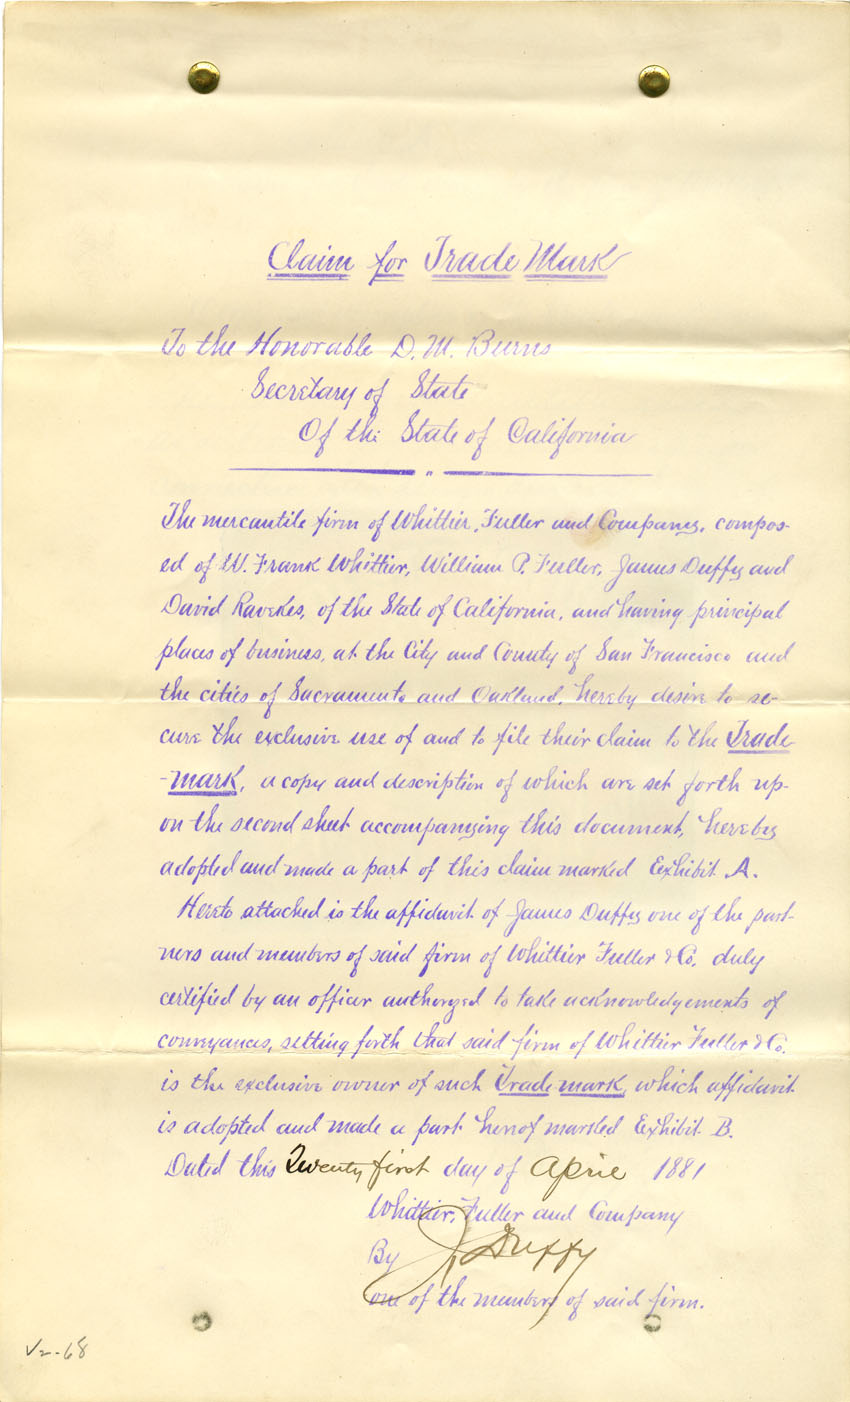 Claim for Trade Mark
To the Honorable D. M. Burns
Secretary of State
Of the State of California
The mercantile firm of Whittier, Fuller and Company, compos-
ed of W. Frank Whittier, William P. Fuller, James Duffy and
David Ravekes, of the State of California, and having principal
places of business, at the City and County of San Francisco and
the cities of Sacramento and Oakland, hereby desire to se-
cure the exclusive use of and to file their claim to the Trade
-mark, a copy and description of which are set forth up-
on the second sheet accompanying this document, hereby
adopted and made a part of this claim marked Exhibit A.
Hereto attached is the affidavit of James Duffy one of the part-
ners and members of said firm of Whittier Fuller & Co. duly
certified by an officer authorized to take acknowledgements of
conveyances, setting forth that said firm of Whittier Fuller & Co.
is the exclusive owner of such Trade mark, which affidavit
is adopted and made a part hereof marked Exhibit B.
Dated this Twenty first day of April 1881
Whittier, Fuller and Company
By J. Duffy
one of the members of said firm.
V2-68